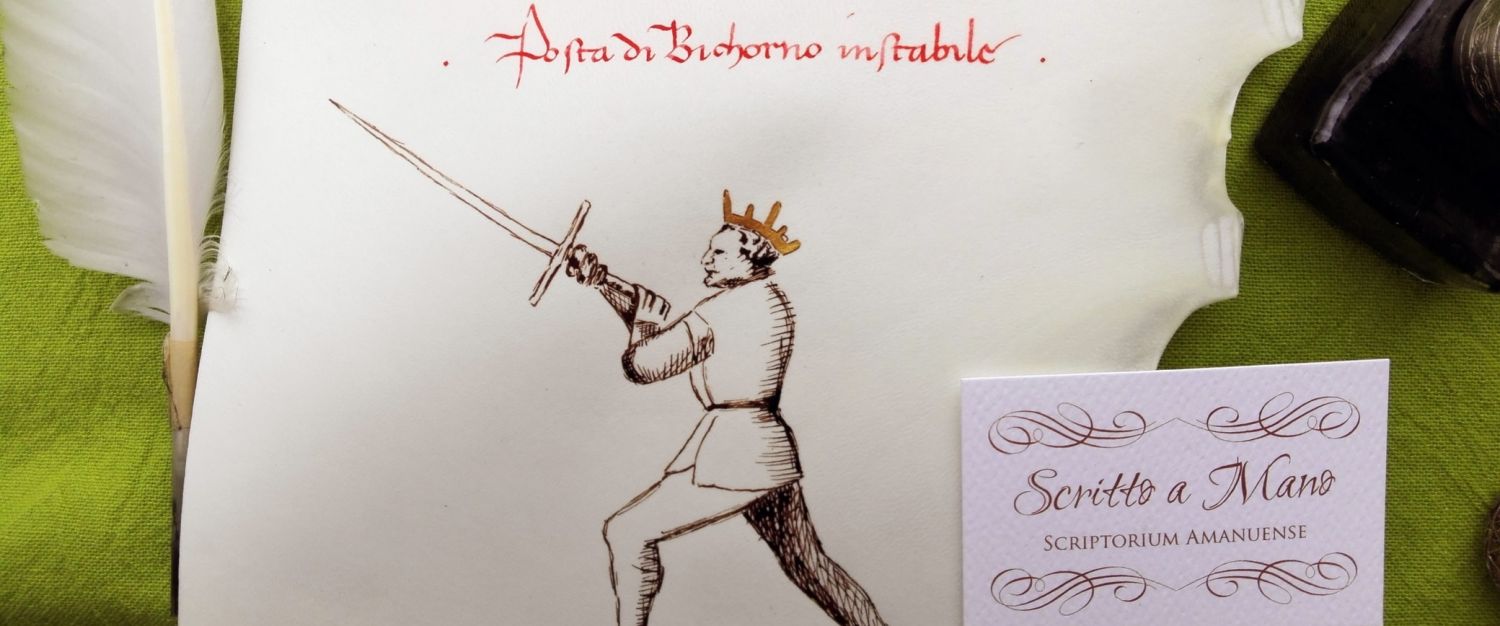 . Posta di Bichorno instabile .
Scritto a Mano
Scriptorium Amanuense